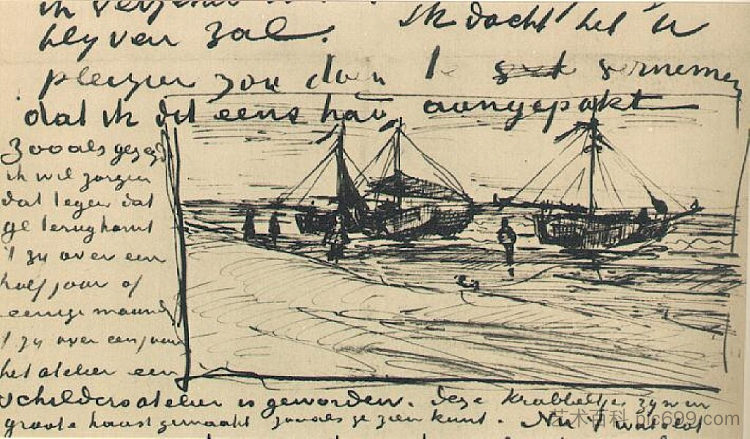 ik
Ik dacht het U
blyven zal.
plezier zou doen te vernemen
dat ik dit eens had aangepakt
Zooals gezegd
ik wil zorgen
dat tegen dat
ge terugkomt
't zy over een
half jaar of
eenige maanden
't zy over een jaar
het atelier een
schildersatelier is geworden. deze krabbeltje zyn in
groote haast gemaakt zooals ge zien kunt. Nu 't
艺术百科 pic699.com